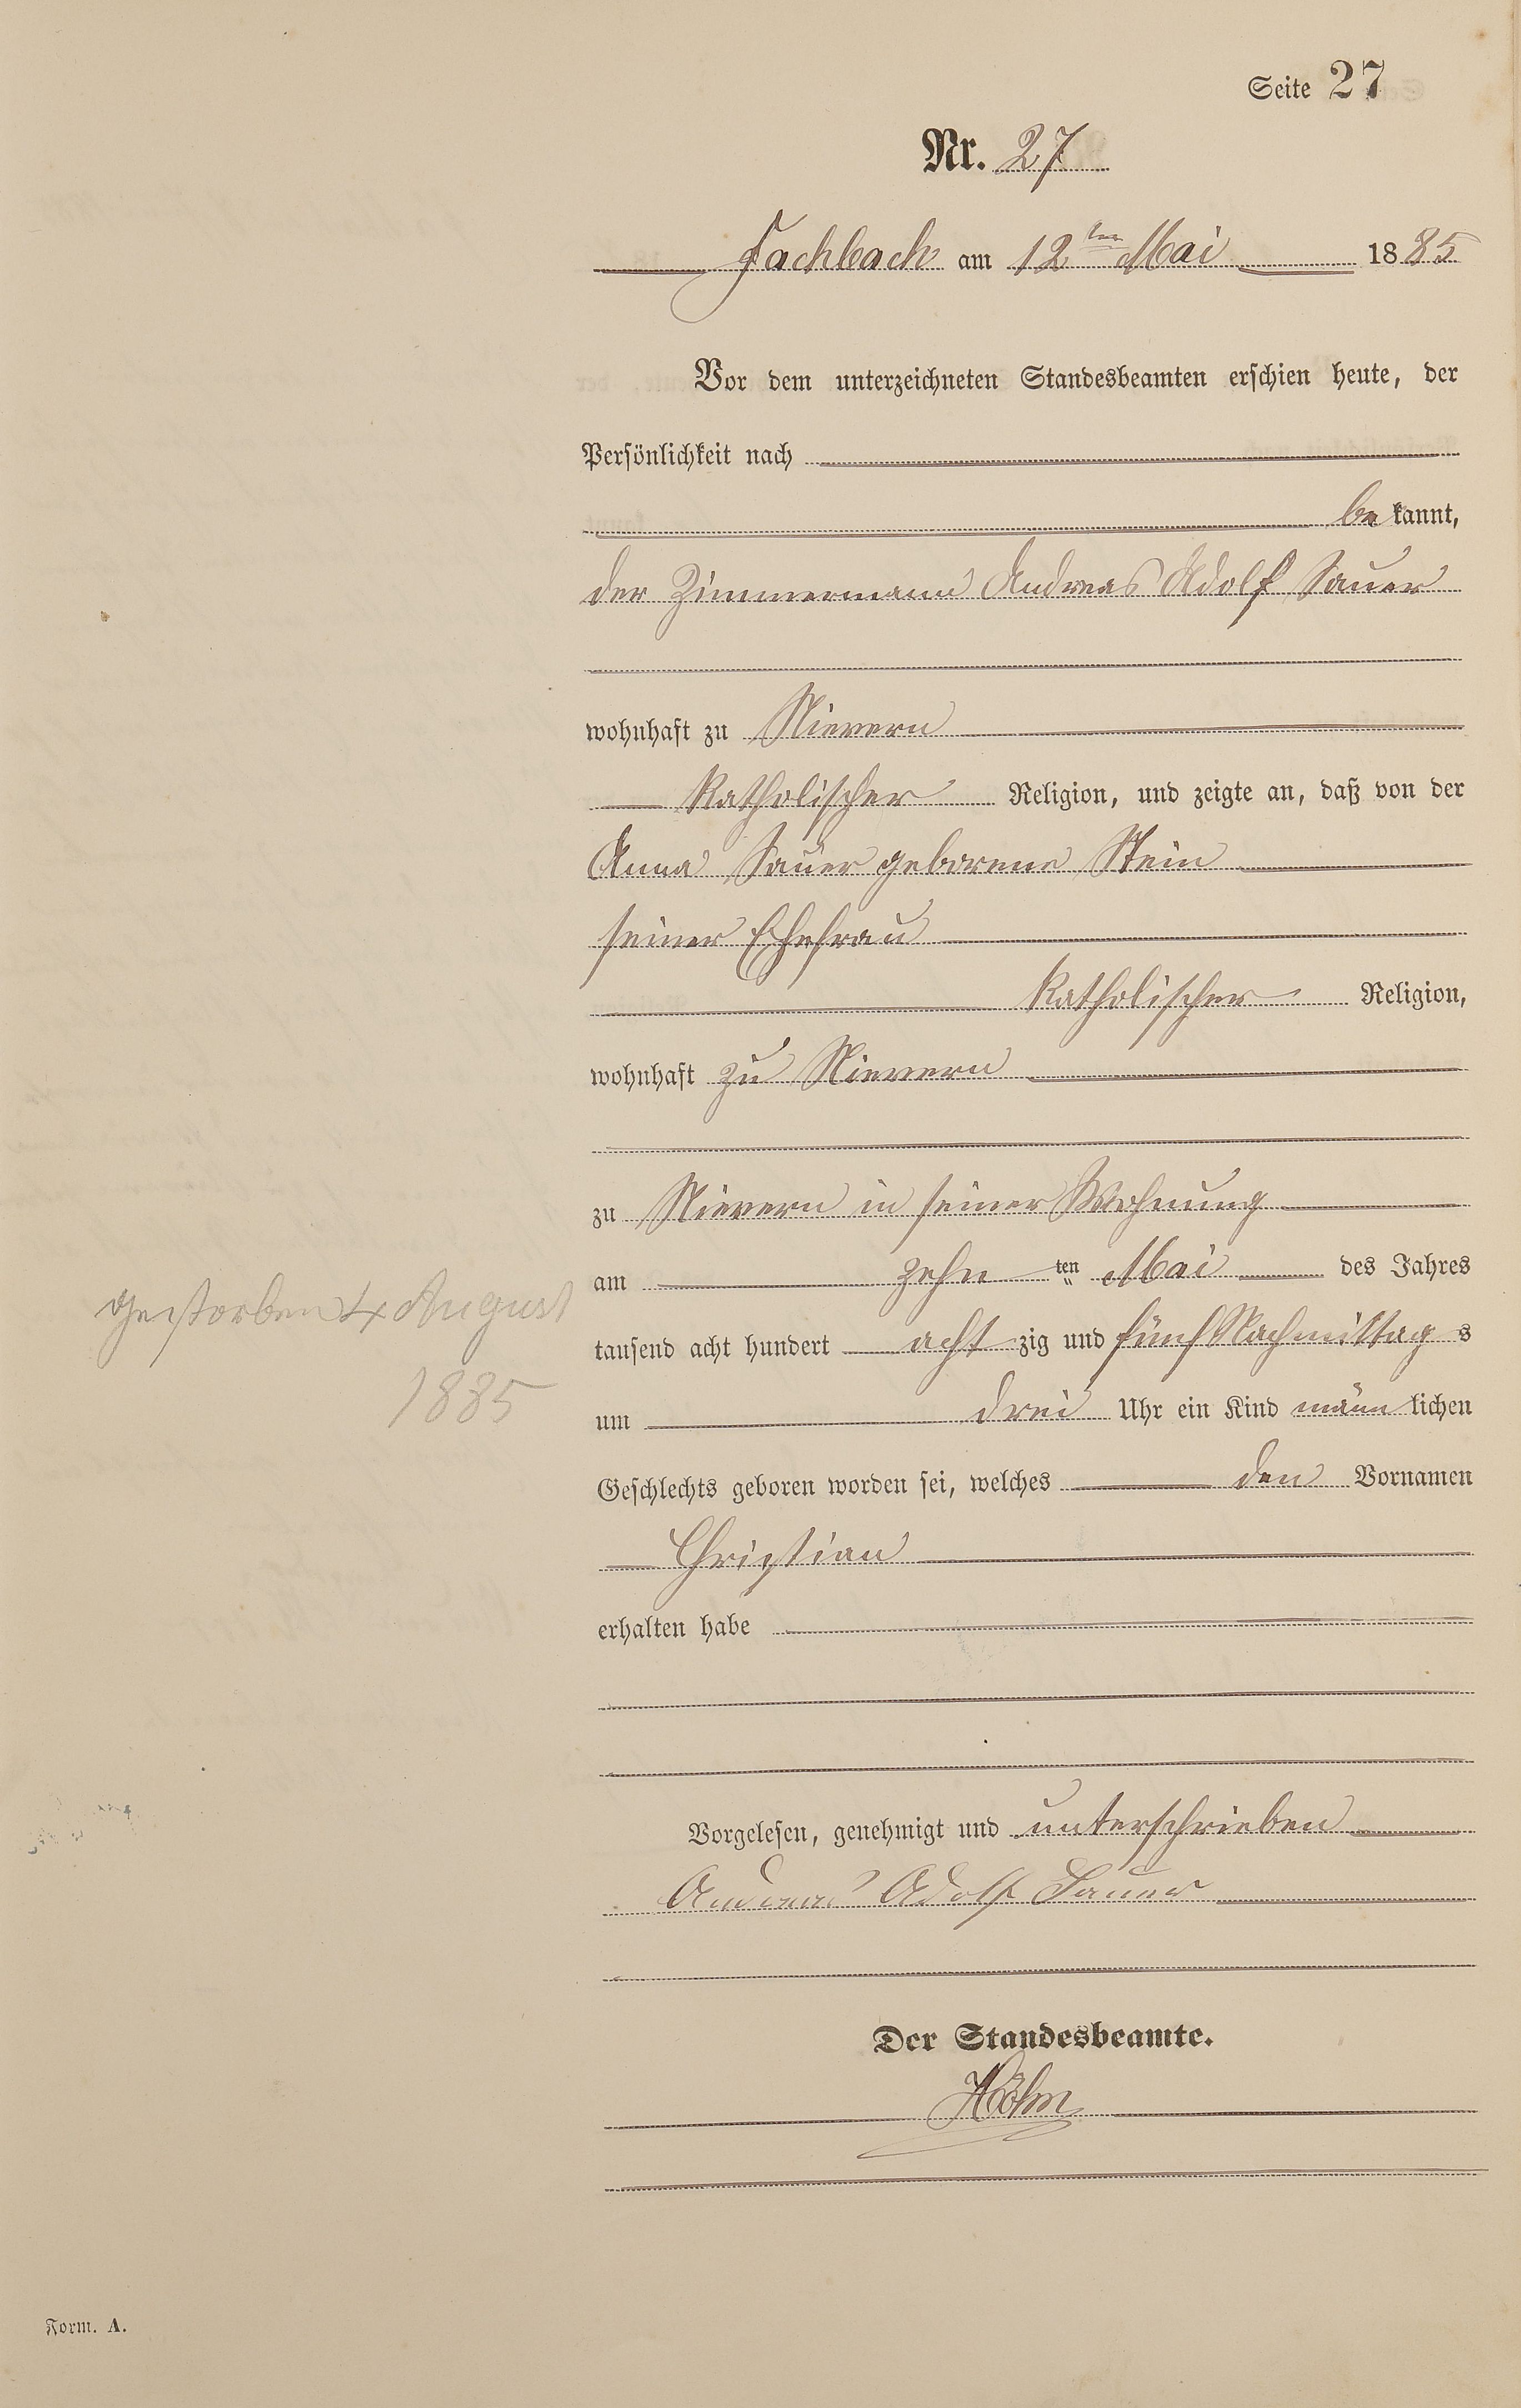 Seite 27
Nr. 27
Fachbach am 12ten Mai 1885
Vor dem unterzeichneten Standesbeamten erschien heute, der
Persönlichkeit nach
bekannt,
der Zimmermann Andreas Adolf Sauer
wohnhaft zu Nievern
Katholischer Religion, und zeigte an, daß von der
Anna Sauer geborene Stein
seiner Ehefrau
Katholischer Religion,
wohnhaft zu Nievern
zu Nievern in seiner Wohnung
am zehnten Mai des Jahres
tausend acht hundert achtzig und fünf Nachmittags
um drei Uhr ein Kind männlichen
Geschlechts geboren worden sei, welches den Vornamen
Christian
erhalten habe
gestorben 4 August
1885
Vorgelesen, genehmigt und unterschrieben
Andreas Adolf Sauer
Der Standesbeamte.
Höhn
Form. A.